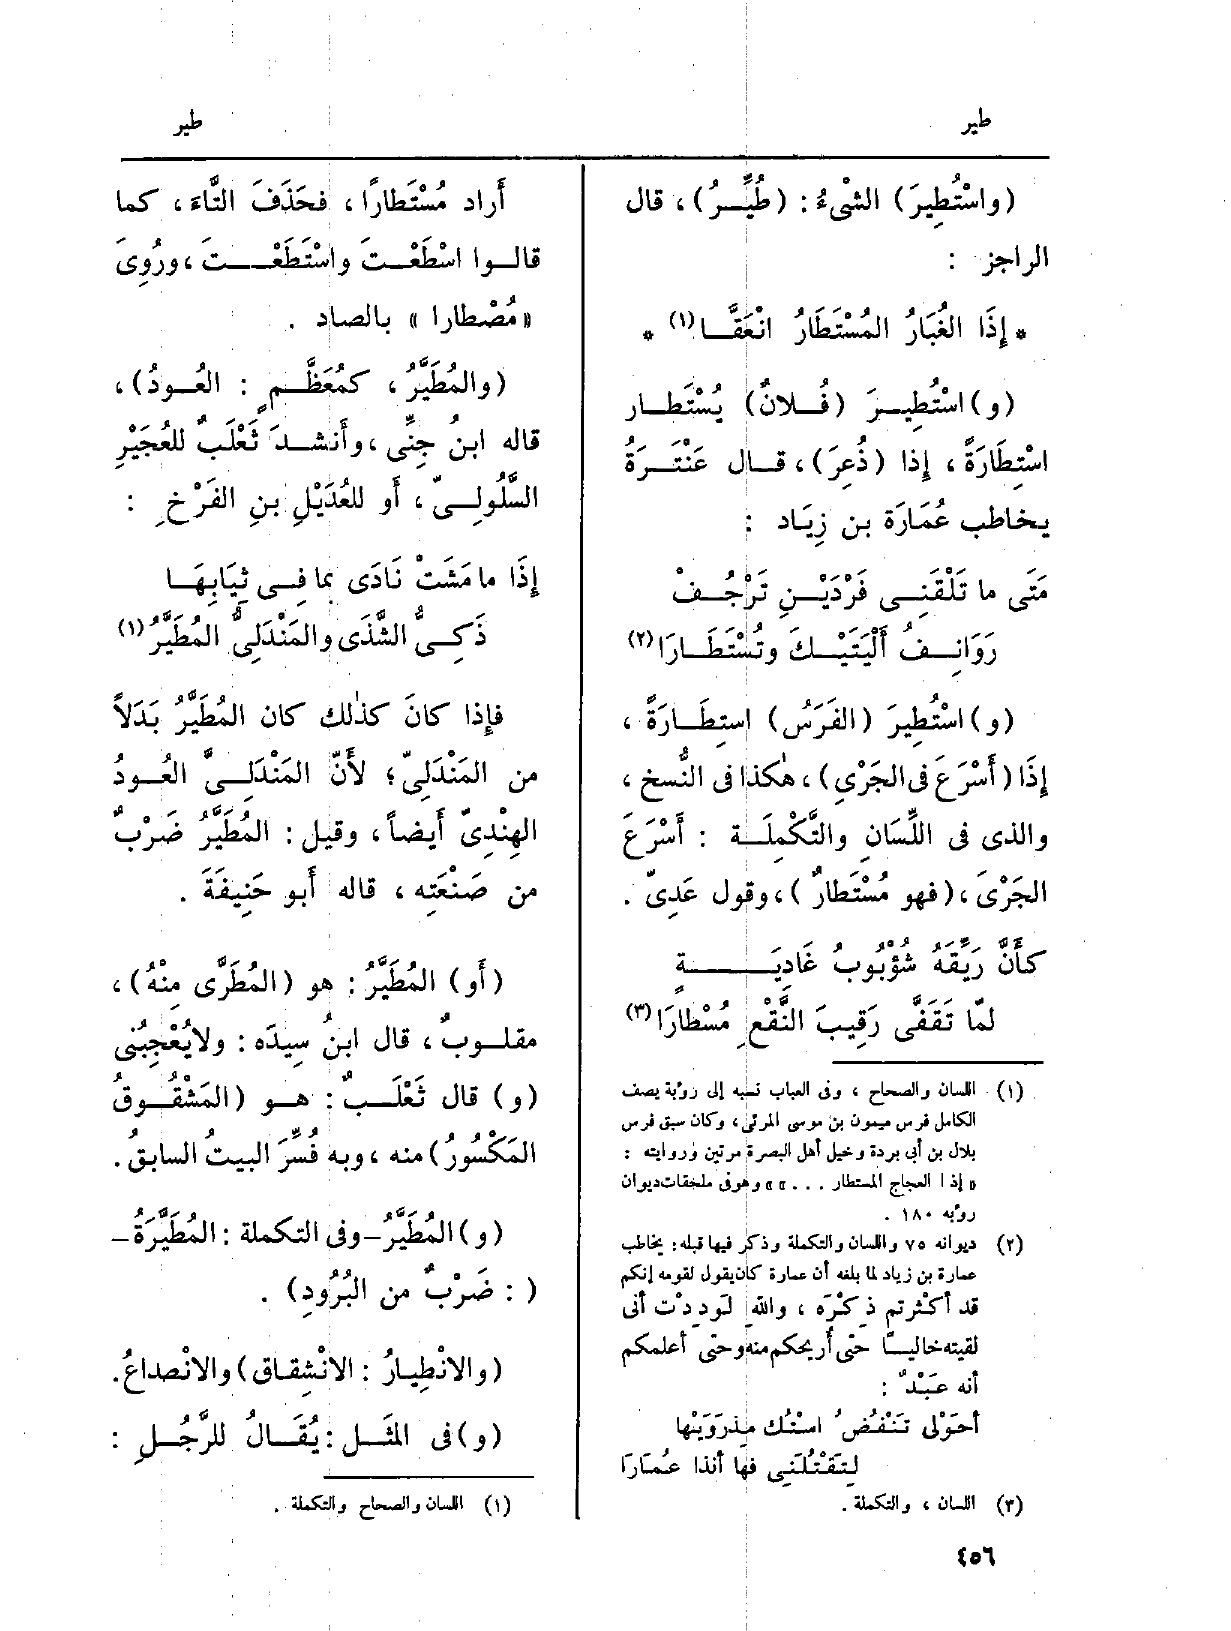 طير
طير
(واسْتُطِيرَ) الشىْءُ : (طُيِّرُ) ، قال
الراجز :
* إِذَا الغُبَارُ المُسْتَطَارُ انْعَقَّا (١) *
(و) اسْتُطِيرَ (فُلانٌ) يُسْتَطار
اسْتِطَارَةً ، إِذا (ذُعِرَ) ، قال عَنْتَرَةُ
يخاطب عُمَارَة بن زِيَاد :
مَتَى ما تَلْقَنِى فَرْدَيْنِ تَرْجُفْ
رَوَانِفُ أَلْيَتَيْكَ وتُسْتَطَارَا (٢)
(و) اسْتُطِيرَ (الفَرَسُ) استِطَارَةً ،
إِذَا (أَسْرَعَ فى الجَرْىِ) ، هٰكذا فى النُّسخ ،
والذى فى اللِّسَانِ والتَّكْمِلَة : أَسْرَعَ
الجَرْىَ ، (فهو مُسْتَطارٌ) ، وقول عَدِىّ .
كأَنَّ رَيِّقَهُ شُؤْبُوبُ غَادِيَةٍ
لمّا تَقَفَّى رَقِيبَ النَّقْعِ مُسْطارَا (٣)
(١) اللسان والصحاح ، وفى العباب نسبه إلى رؤبة يصف
الكامل فرس ميمون بن موسى المرئى ، وكان سبق فرس
بلال بن أبى بردة وخيل أهل البصرة مرتين وروايته :
« إذا العجاج المستطار . . . » وهو فى ملحقات ديوان
رؤبه ١٨٠ .
(٢) ديوانه ٧٥ واللسان والتكملة وذكر فيها قبله : يخاطب
عمارة بن زياد لما بلغه أن عمارة كان يقول لقومه إنكم
قد أكثرتم ذِكْرَه ، واللهِ لودِدْت أنى
لقيته خالياً حتى أريحكم منه وحتى أعلمكم
أنه عَبْدٌ :
أحَوْلى تَنْفُضُ اسْتُك مِذرَوَيْها
لِتَقْتُلَنِى فها أنذا عُمَارَا
(٣) اللسان ، والتكملة .
أَراد مُسْتَطارًا ، فحَذَفَ التَّاءَ ، كما
قالوا اسْطَعْتَ واسْتَطَعْتَ ، ورُوِىَ
« مُصْطارا » بالصاد .
(والمُطَيَّرُ ، كمُعَظَّمٍ : العُودُ) ،
قاله ابنُ جِنِّى ، وأَنشدَ ثَعْلَبٌ للعُجَيْرِ
السَّلُولِىّ ، أَو للعُدَيْلِ بنِ الفَرْخِ :
إِذَا ما مَشَتْ نَادَى بما فِى ثِيَابِهَا
ذَكِىُّ الشَّذَى والمَنْدَلِىُّ المُطَيَّرُ (١)
فإِذا كانَ كذٰلك كان المُطَيَّرُ بَدَلاً
من المَنْدَلِىّ ؛ لأَنّ المَنْدَلِىَّ العُودُ
الهِنْدِىّ أَيضاً ، وقيل : المُطَيَّرُ ضَرْبٌ
من صَنْعَتِه ، قاله أَبو حَنِيفَةَ .
(أَو) المُطَيَّرُ : هو (المُطَرَّى مِنْهُ) ،
مقلوبٌ ، قال ابنُ سِيدَه : ولا يُعْجِبُنى
(و) قال ثَعْلَبٌ : هو (المَشْقُوقُ
المَكْسُورُ) منه ، وبه فُسِّرَ البيتُ السابقُ .
(و) المُطَيَّرُ – وفى التكملة : المُطَيَّرَةُ –
( : ضَرْبٌ من البُرُودِ) .
(والانْطِيارُ : الانْشِقاق) والانْصداعُ .
(و) فى المَثَل : يُقَالُ للرَّجُلِ :
(١) اللسان والصحاح والتكملة .
٤٥٦